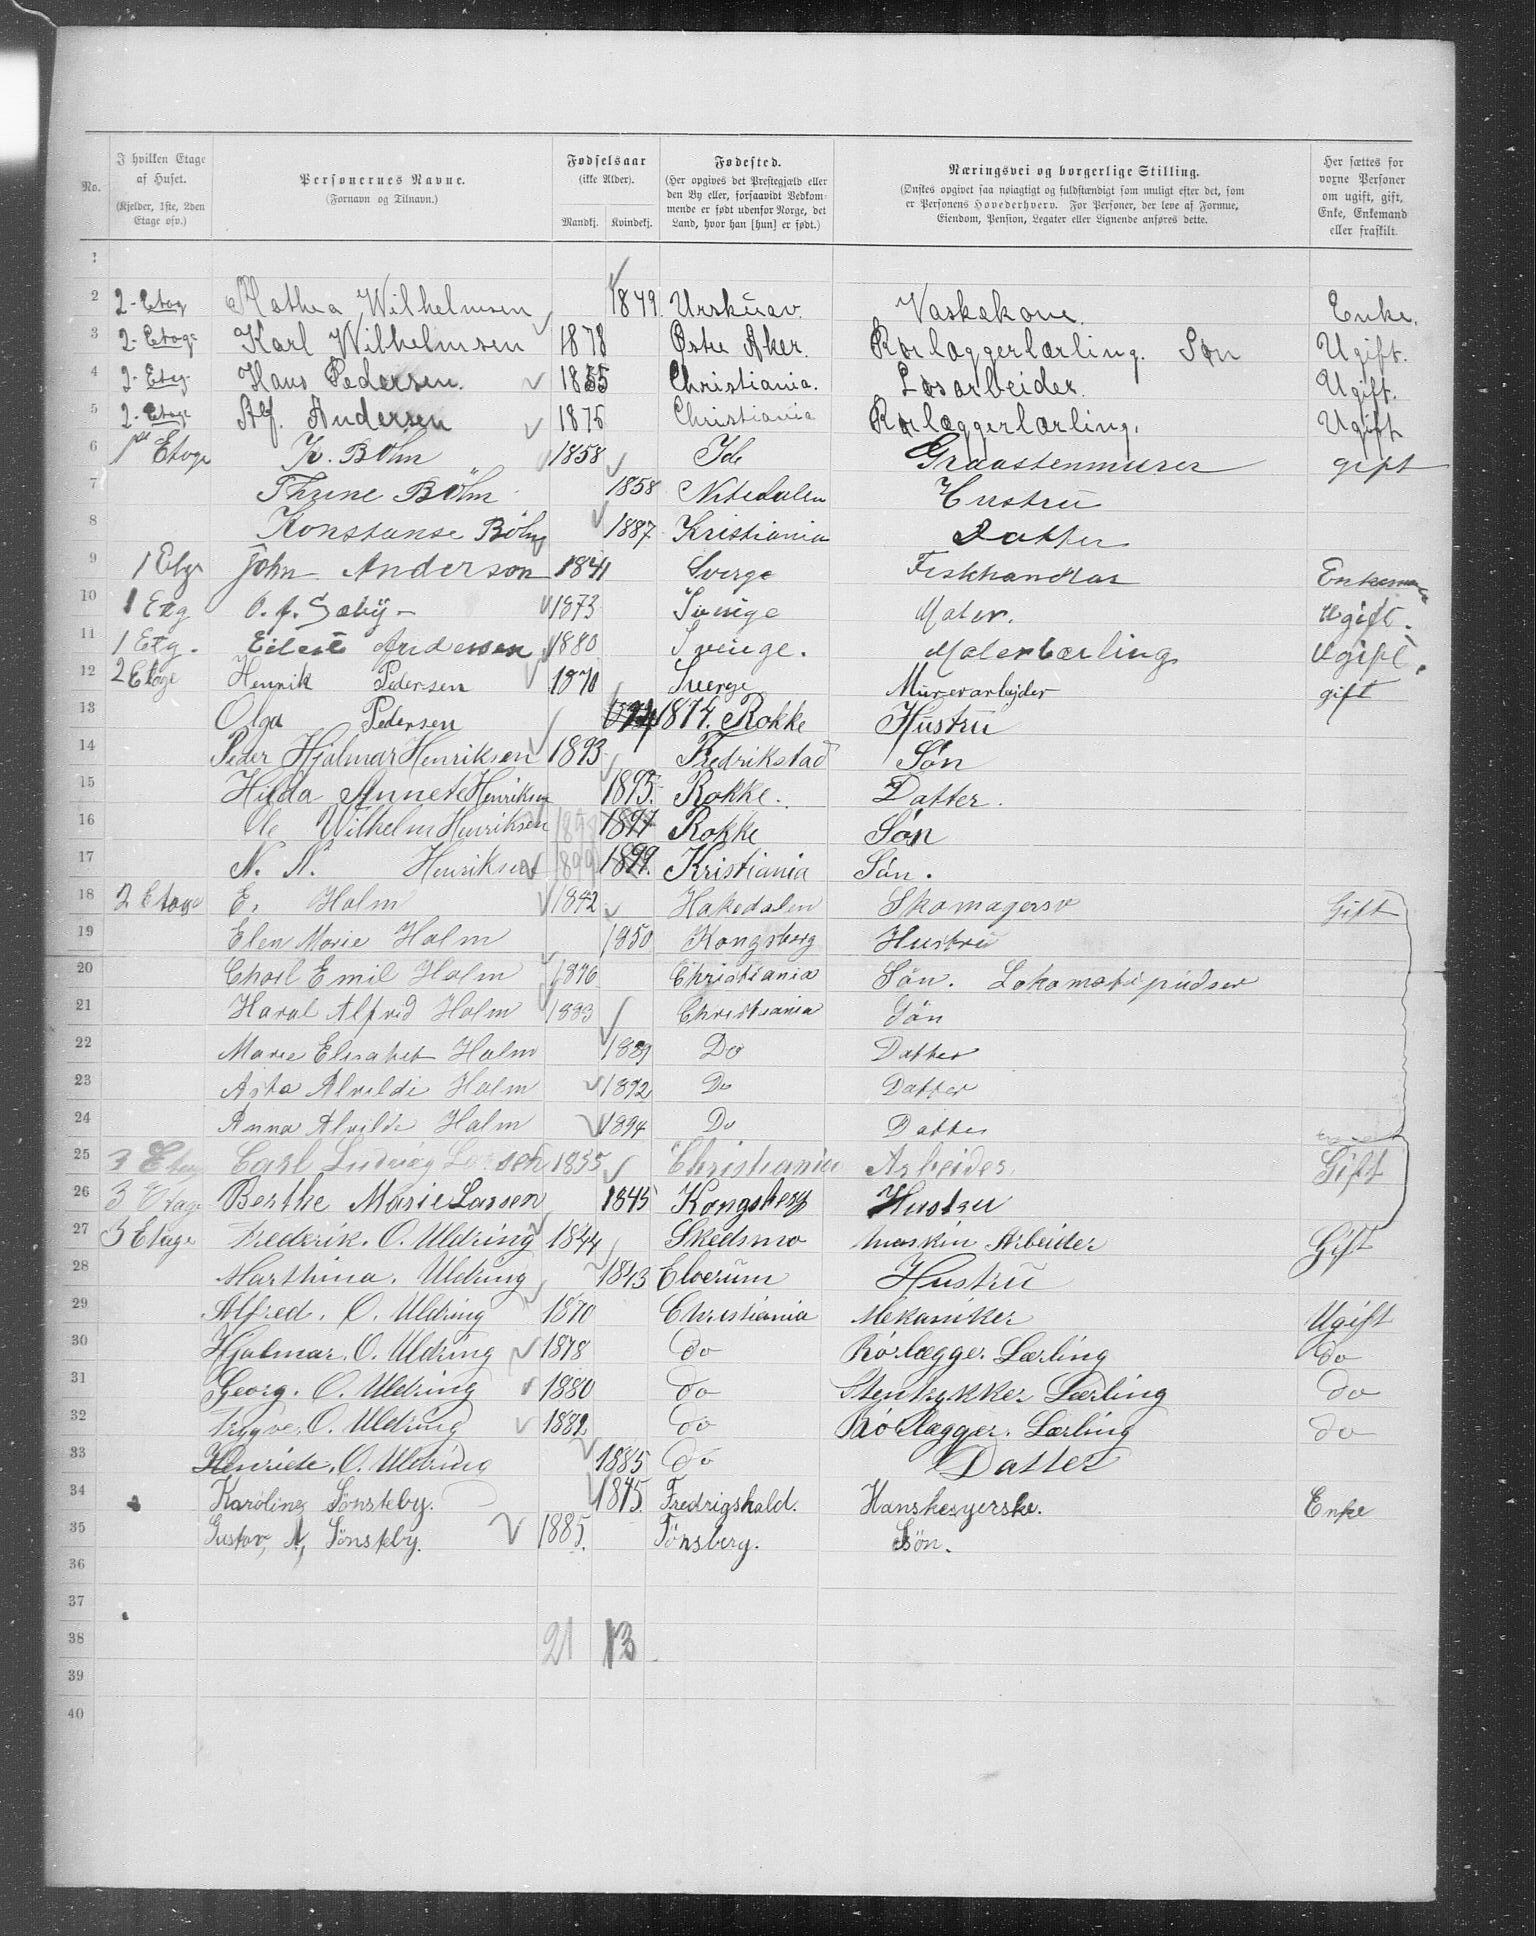 No.
I hvilken Etage af Huset.
(Kjelder, 1ste, 2den Etage osv.)
Personernes Navne.
(Fornavn og Tilnavn.)
Fødselsaar
(ikke Alder).
Mandkj. Kvindekj.
Fødested.
(Her opgives det Prestegjæld eller den By eller, forsaavidt Vedkommende er født udenfor Norge, det Land, hvor han [hun] er født.)
Næringsvei og borgerlige Stilling.
(Ønskes opgivet saa nøiagtigt og fuldstændigt som muligt efter det, som er Personens Hovederhverv. For Personer, der leve af Formue, Eiendom, Pension, Legater eller Lignende anføres dette.)
Her sættes for voxne Personer om ugift, gift, Enke, Enkemand eller fraskilt.
1
2 2-Etag Mathea Wilhelmsen 1849. Urskuav Vaskekone. Enke.
3 2-Etage Karl Wilhelmsen 1878 Østre Aker. Rørlæggerlærling. Søn Ugift.
4 2-Etag Hans Pedersen. 1855 Christiania. Løsarbeider. Ugift.
5 2-Etage Alf. Andersen 1875 Christiania Rørlæggerlærling. Ugift
6 1ste Etage K. Bøhm 1858 Ide Graastenmurer gift
7 Thrine Bøhm 1858 Nitedalen Hustru
8 Konstanse Bøhm 1887 Kristiania Datter
9 1 Etge John Anderson 1841 Sverge Fiskhandlar
10 1 Etg O. f. Sæby 1873 Sverige Maler. Ugift.
11 1 Etg. Andersen 1880 Sverige. Malerlærling Ugift.
12 2 Etage Henrik Pedersen 1870 Sverge Murerarbejder gift
13 Olga Pedersen 1874. Rokke Hustru
14 Peder Hjalmar Henriksen 1893 Fredrikstad Søn
15 Hilda Annete Henriksen 1895. Rokke. Datter.
16 Ole Wilhelm Henriksen 1897 Rokke Søn
17 N. N. Henriksen 1899 1899. Kristiania Søn.
18 2 Etage E. Holm 1842 Hakedalen Skomagersv Gift
19 Elen Marie Holm 1850 Kongsberg Hustru
20 Charl Emil Holm 1876 Christiania Søn. Lokomotivpudser
21 Haral Alfred Holm 1883 Christiania Søn
22 Marie Elisabet Holm 1889 Do Datter
23 Asta Alvilde Holm 1892 Do Datter
24 Anna Alvilde Holm 1894 Do Datter
25 3 Etag Carl Ludvig Larsen 1855 Christiania Arbeider. Gift
26 3 Etage Berthe Marie Larsen 1845 Kongsberg Hustru
27 3 Etage Frederik. O. Uldring 1844 Skedsmo Maskin Arbeider Gift
28 Marthina. Uldring 1843 Elverum Hustru
29 Alfred. O. Uldring 1870 Christiania Mekaniker Ugift
30 Hjalmar. O. Uldring 1878 do Rørlægger. Lærling do
31 Georg. O. Uldring 1880 do Stentrykker Lærling do
32 Trygve. O. Uldring 1882 do Rørlægger. Lærling do
33 Henriete. O. Uldring 1885 do Datter
34 Karoline Sönsteby. 1845. Fredrigshald. Hanskesyerske. Enke
35 Gustav, A, Sönsteby. 1885. Tönsberg. Sön.
36
37
38 21 13
39
40